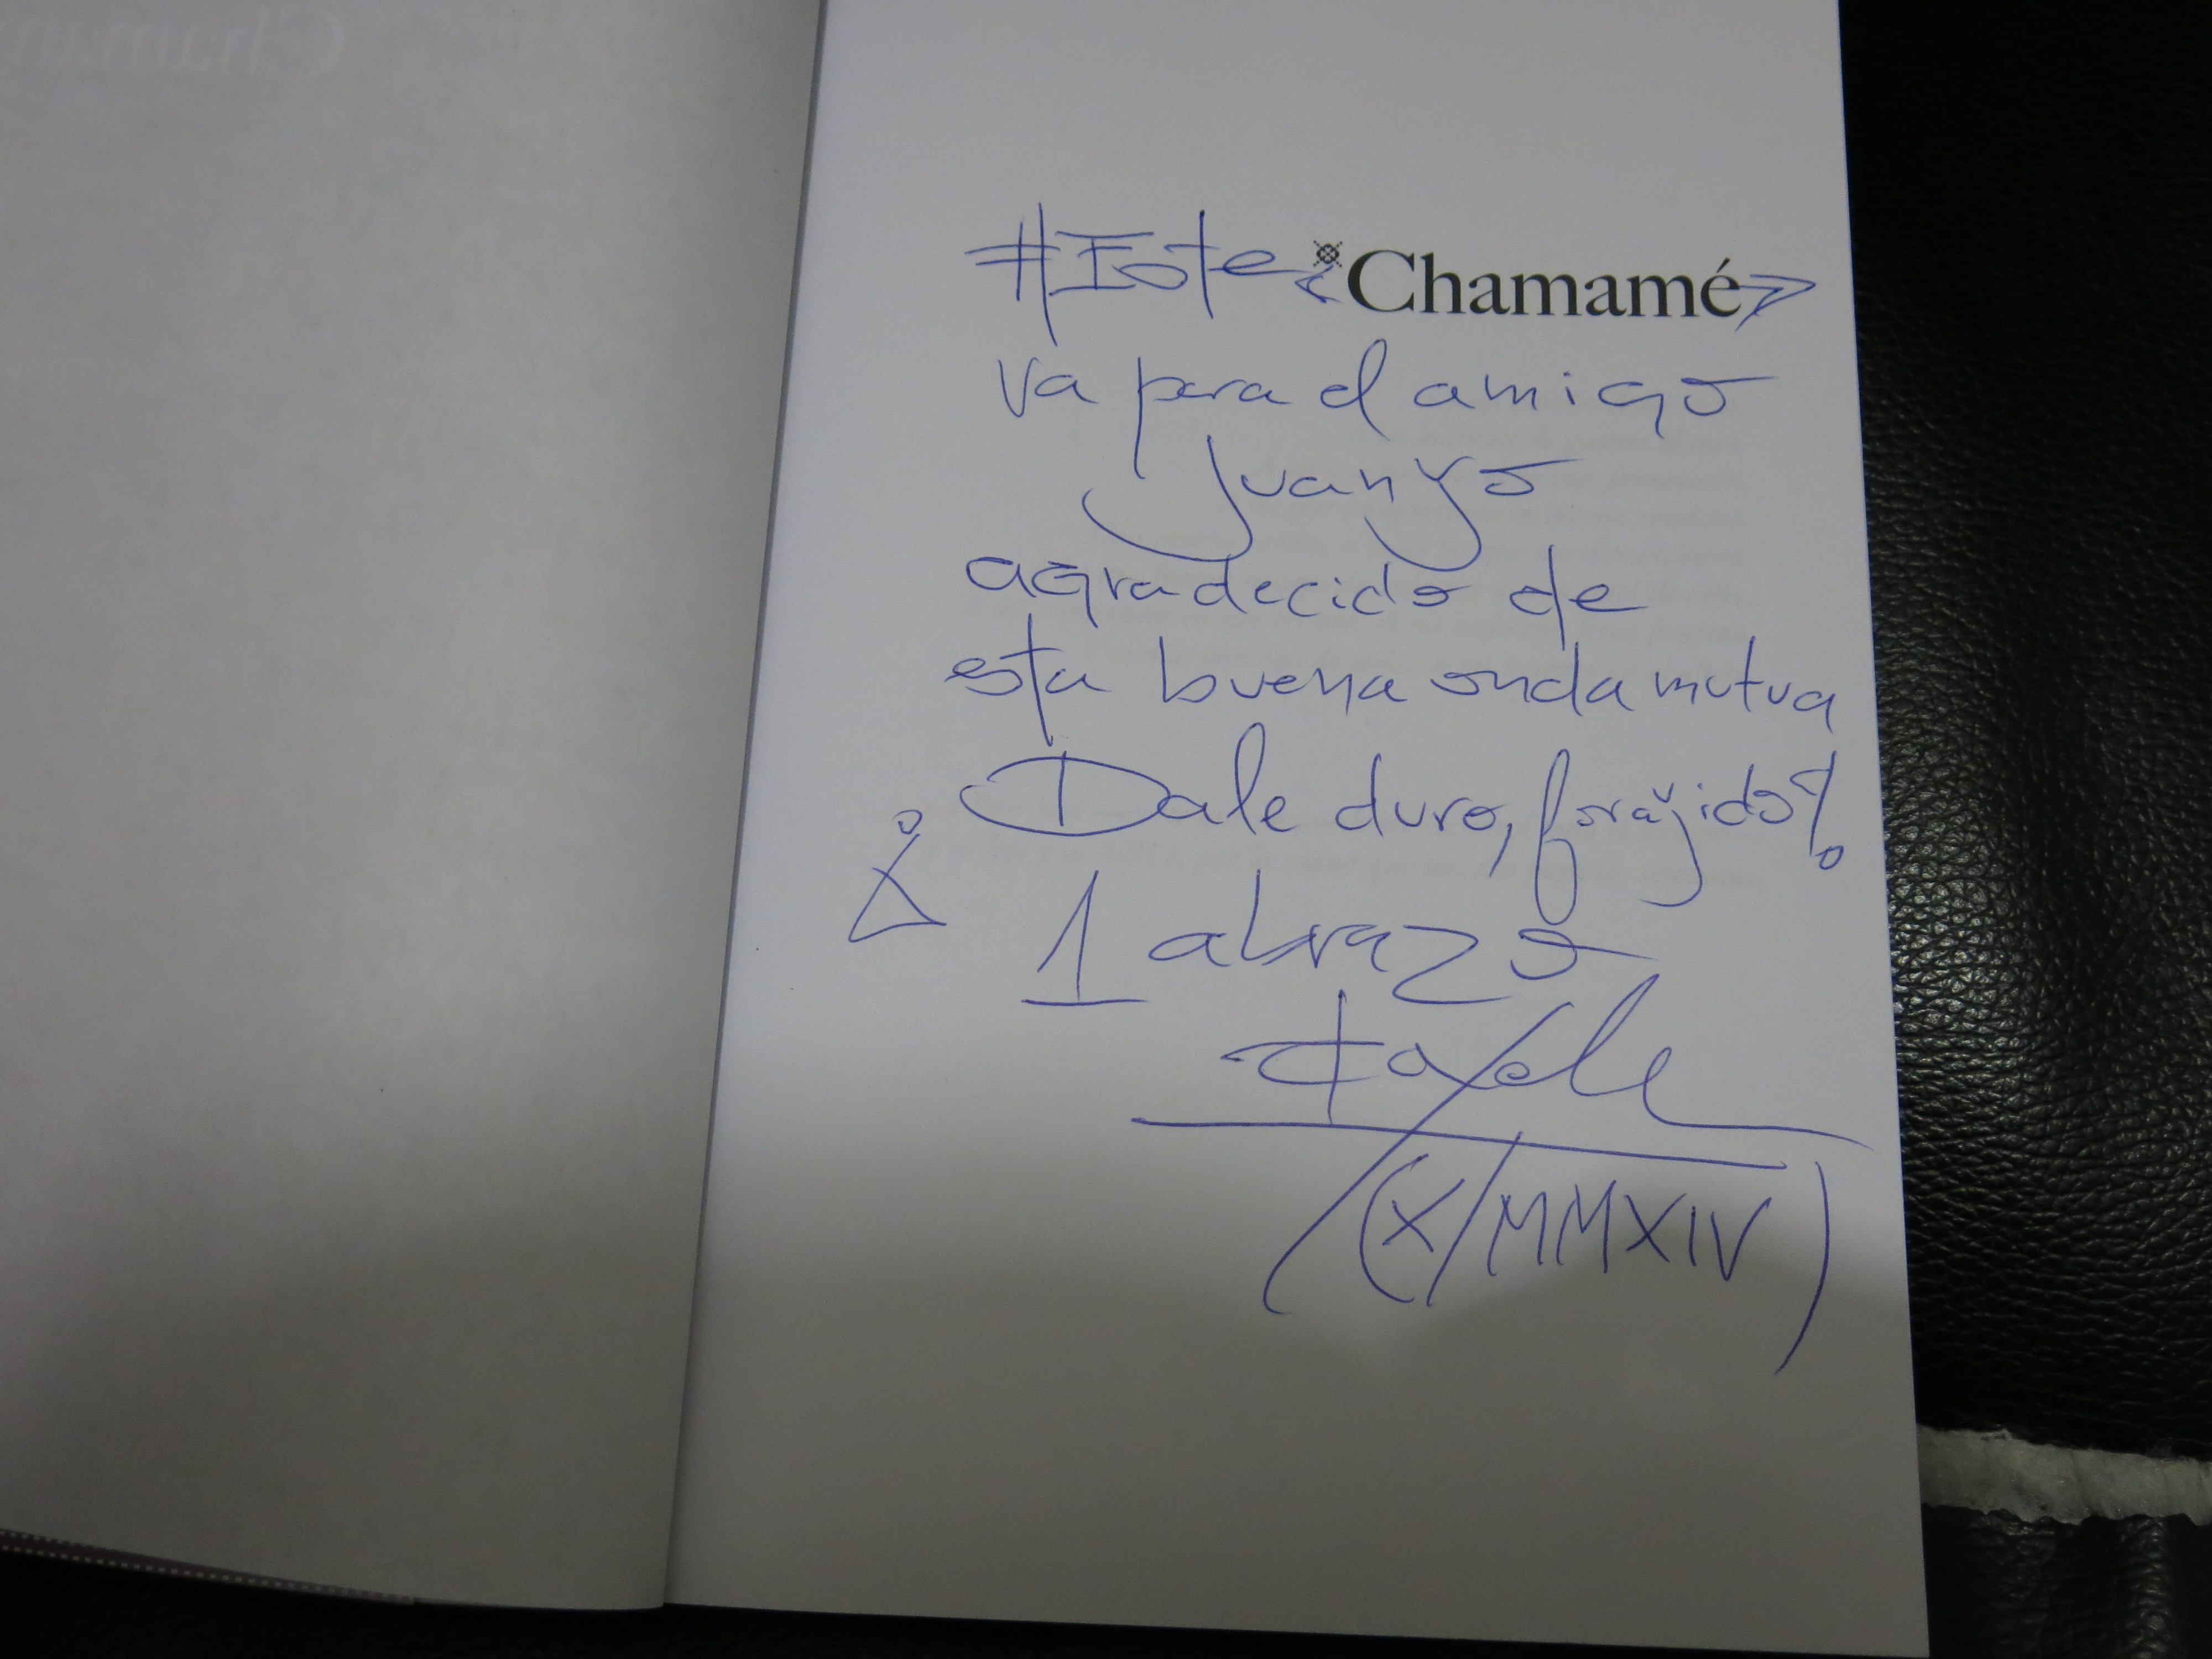 #Este «Chamamé»
va para el amigo
Juanyo
agradecido de
esta buena onda mutua
Dale duro, forajido!
1 abrazo
(X/MMXIV)